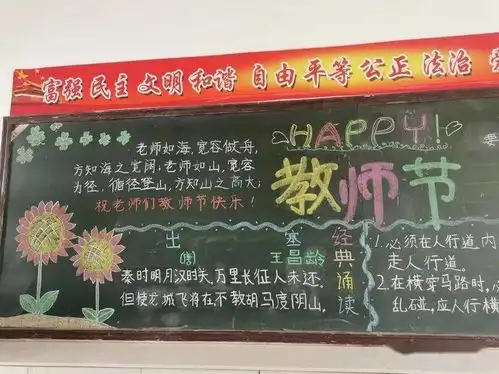 富强 民主 文明 和谐 自由 平等 公正 法治
老师如海,宽容做舟,
方知海之宽阔;老师如山,宽容
为径,循径登山,方知山之高大;
祝老师们教师节快乐!
HAPPY!
教师节
出 塞
王昌龄
秦时明月汉时关,万里长征人未还.
但使龙城飞将在不教胡马度阴山.
经典诵读
1.必须在人行道内
走人行道.
2.在横穿马路时,
乱碰,应人行横